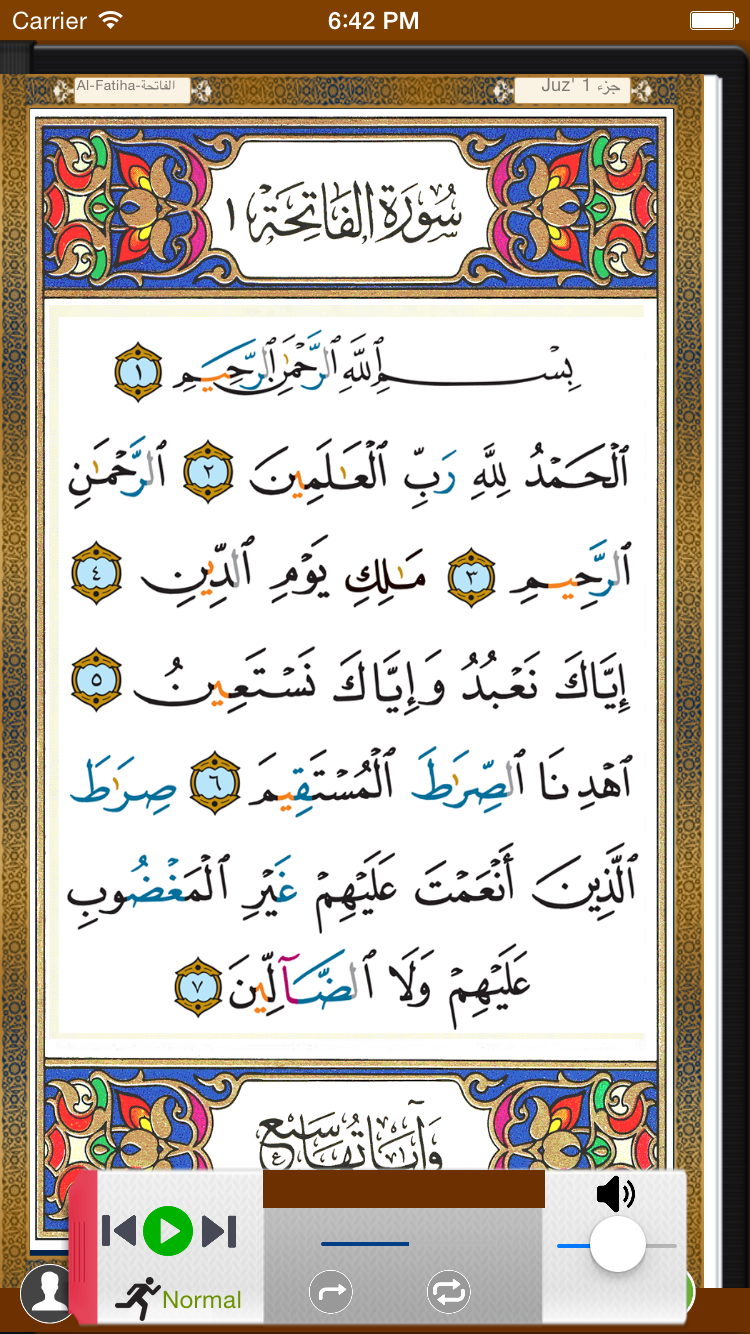 Carrier 6:42 PM
Al-Fatiha-الفاتحة Juz' 1 جزء
سُورَةُ الفَاتِحَةِ ١
بِسْمِ ٱللَّهِ ٱلرَّحْمَٰنِ ٱلرَّحِيمِ ١
ٱلْحَمْدُ لِلَّهِ رَبِّ ٱلْعَٰلَمِينَ ٢ ٱلرَّحْمَٰنِ
ٱلرَّحِيمِ ٣ مَٰلِكِ يَوْمِ ٱلدِّينِ ٤
إِيَّاكَ نَعْبُدُ وَإِيَّاكَ نَسْتَعِينُ ٥
ٱهْدِنَا ٱلصِّرَٰطَ ٱلْمُسْتَقِيمَ ٦ صِرَٰطَ
ٱلَّذِينَ أَنْعَمْتَ عَلَيْهِمْ غَيْرِ ٱلْمَغْضُوبِ
عَلَيْهِمْ وَلَا ٱلضَّآلِّينَ ٧
وَآيَاتُهَا سَبْعٌ
Normal